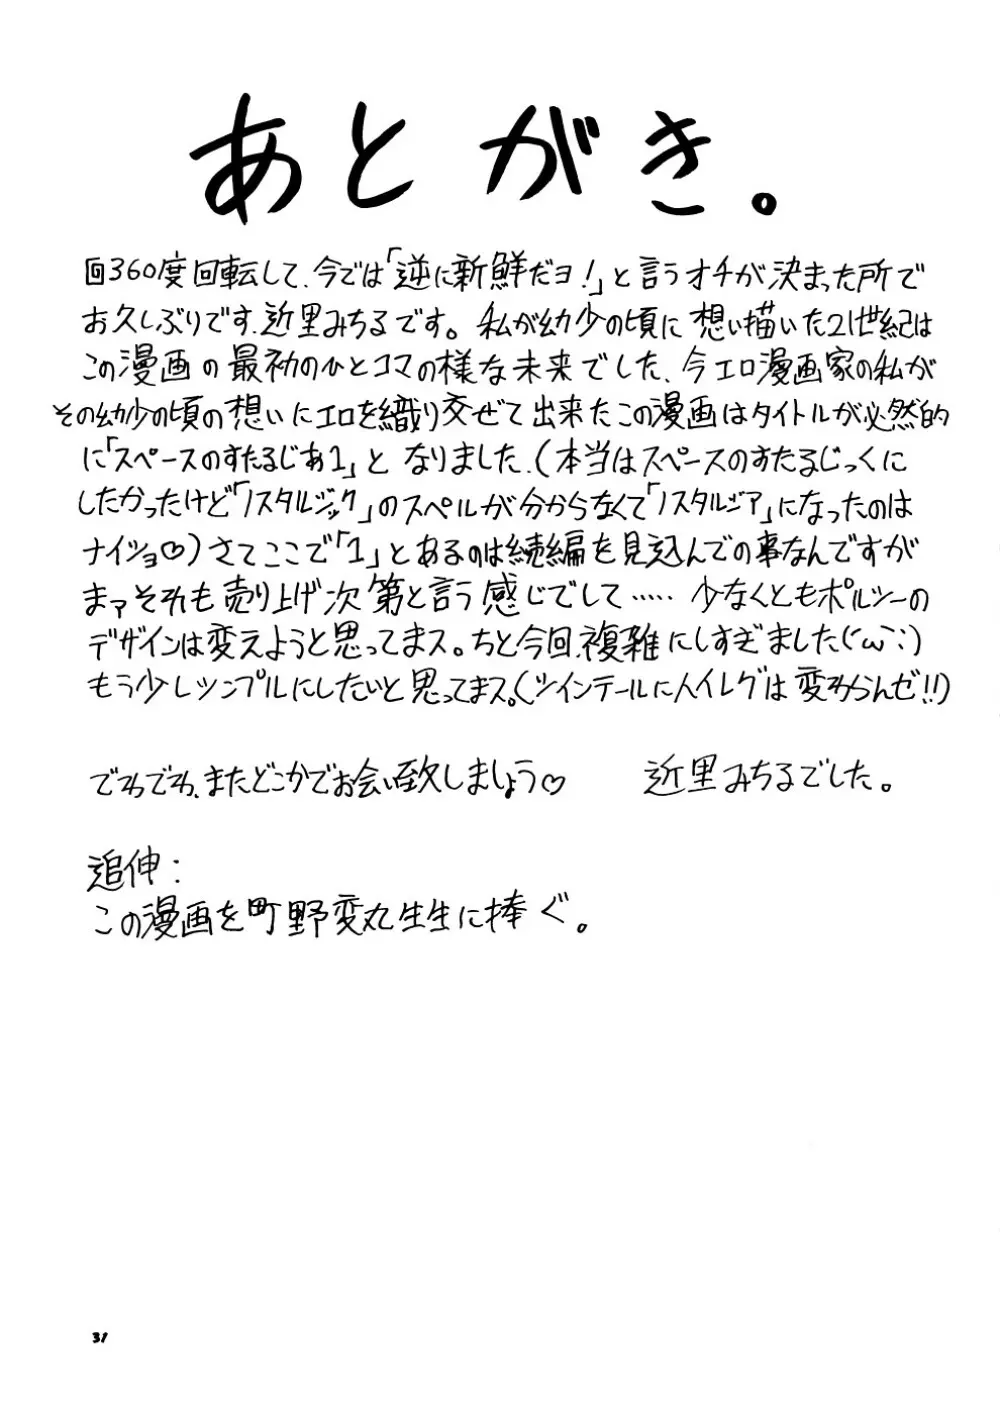 あとがき。
回360度回転して、今では「逆に新鮮だヨ!」と言うオチが決まった所で
お久しぶりです、近里みちるです。私が幼少の頃に想い描いた21世紀は
この漫画の最初のひとコマの様な未来でした、今エロ漫画家の私が
その幼少の頃の想いにエロを織り交ぜて出来たこの漫画はタイトルが必然的
に「スペースのすたるじあ1」となりました、(本当はスペースのすたるじっくに
したかったけど「ノスタルジック」のスペルが分からなくて「ノスタルジア」になったのは
ナイショ♡)さてここで「1」とあるのは続編を見込んでの事なんですが
まァそれも売り上げ次第と言う感じでして……少なくともポルシーの
デザインは変えようと思ってまス。ちと今回、複雑にしすぎました(´ω`;)
もう少しシンプルにしたいと思ってまス。(ツインテールに人イレグは変わらんゼ!!)
でわでわ、またどこかでお会い致しましょう♡ 近里みちるでした。
追伸:
この漫画を町野変丸生生に捧ぐ。
31